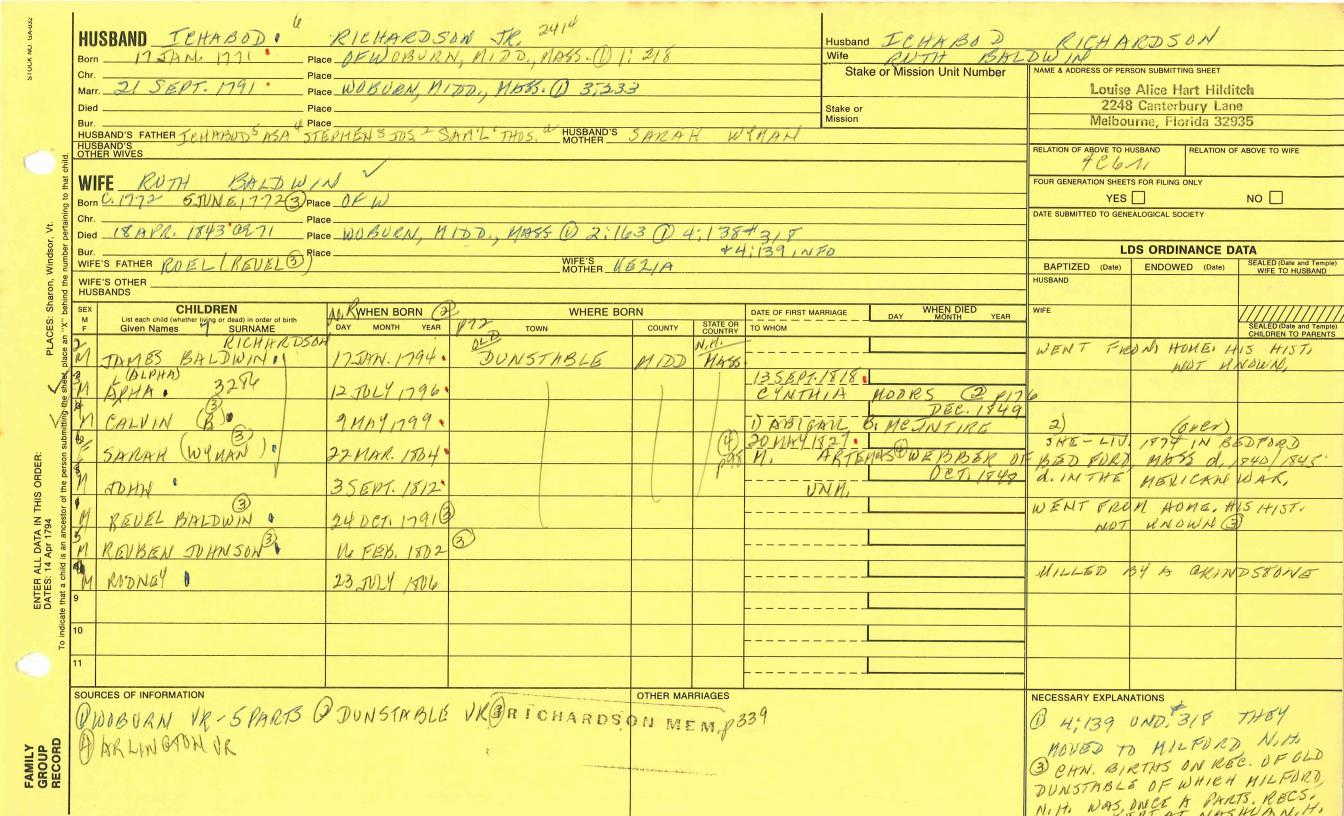 STOCK NO. GA-032
HUSBAND ICHABOD 6 RICHARDSON JR. 2414
Born 17 JAN. 1771 Place OF WOBURN, MIDD., MASS. ① 1:218
Chr. Place
Marr. 21 SEPT. 1791 Place WOBURN, MIDD., MASS. ① 3:233
Died Place
Bur. Place
HUSBAND'S FATHER ICHABOD5 ASA4 STEPHEN3 JOS.2 SAM'L THOS. HUSBAND'S MOTHER SARAH WYMAN
HUSBAND'S OTHER WIVES
WIFE RUTH BALDWIN ✓
Born C. 1772 5 JUNE, 1772 ③ Place OF W
Chr. Place
Died 18 APR. 1843 Æ71 Place WOBURN, MIDD., MASS ① 2:163 ① 4:138 #318
Bur. Place & 4:139 INFO
WIFE'S FATHER ROEL (REUEL ③) WIFE'S MOTHER KEZIA
WIFE'S OTHER HUSBANDS
Husband ICHABOD RICHARDSON
Wife RUTH BALDWIN
Stake or Mission Unit Number
Stake or Mission
NAME & ADDRESS OF PERSON SUBMITTING SHEET
Louise Alice Hart Hilditch
2248 Canterbury Lane
Melbourne, Florida 32935
RELATION OF ABOVE TO HUSBAND RELATION OF ABOVE TO WIFE
FOUR GENERATION SHEETS FOR FILING ONLY
YES NO
DATE SUBMITTED TO GENEALOGICAL SOCIETY
LDS ORDINANCE DATA
BAPTIZED (Date) ENDOWED (Date) SEALED (Date and Temple) WIFE TO HUSBAND
HUSBAND
WIFE
SEALED (Date and Temple) CHILDREN TO PARENTS
SEX M F
CHILDREN
List each child (whether living or dead) in order of birth
Given Names 7 SURNAME
WHEN BORN ②
DAY MONTH YEAR p72
WHERE BORN
TOWN COUNTY STATE OR COUNTRY
DATE OF FIRST MARRIAGE
TO WHOM
WHEN DIED
DAY MONTH YEAR
2 M JAMES BALDWIN RICHARDSON 17 JAN. 1794 OLD DUNSTABLE MIDD N.H. MASS WENT FROM HOME. HIS HIST. NOT KNOWN,
3 M APHA (ALPHA) 3286 12 JULY 1796 13 SEPT. 1818 CYNTHIA MOORS ② p176
M CALVIN (B) ③ 9 MAY 1799 DEC. 1849 1) ABIGAIL B. McINTIRE 2) (over)
6 F SARAH (WYMAN) ③ 22 MAR. 1804 ④ p98 20 MAY 1827 M. ARTEMAS WEBBER OF BEDFORD, MASS d. 1840/1845
SHE-LIV. 1874 IN BEDFORD
8 M JOHN 3 SEPT. 1812 UNM. OCT. 1847 d. IN THE MEXICAN WAR,
1 M REUEL BALDWIN ③ 24 OCT. 1791 ③ WENT FROM HOME. HIS HIST. NOT KNOWN ③
5 M REUBEN JOHNSON ③ 16 FEB. 1802 ③
M RODNEY 23 JULY 1806 KILLED BY A GRINDSTONE
9
10
11
SOURCES OF INFORMATION
① WOBURN VR-5 PARTS ② DUNSTABLE VR ③ RICHARDSON MEM, p339
④ ARLINGTON VR
OTHER MARRIAGES
NECESSARY EXPLANATIONS
① 4:139 UND. #318 THEY
MOVED TO MILFORD N.H.
③ CHN. BIRTHS ON REC. OF OLD
DUNSTABLE OF WHICH MILFORD,
N.H. WAS ONCE A PART. RECS.
KEPT AT NASHUA N.H.
PLACES: Sharon, Windsor, Vt.
ENTER ALL DATA IN THIS ORDER:
DATES: 14 Apr 1794
To indicate that a child is an ancestor of the person submitting the sheet, place an "X" behind the number pertaining to that child.
FAMILY GROUP RECORD